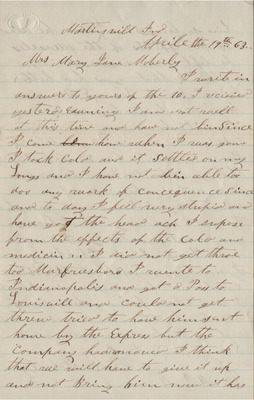 Martinsvill Ind
Aprile the 19th 63.
Mrs Mary Jane Moberly
I write in
answer to yours of the 10, I received
yesterd evening I am not well
at this time and have not bin Since
I Come home when I was down
I took Cold and it Settled on my
lungs and I have not bin able too
doo any work of Concequence Since
and to day I feel very stupid and
have got the head ach I supose
from the effects of the Cold and
medicin .. I did not get thrue
too Murfreesboro I wente to
Indianapolis and got a Pass to
Louisvill and Could not get
threw tried to have him sent
home by the Express but the
Company I think
that we will have to give it up
and not Bring him now it has